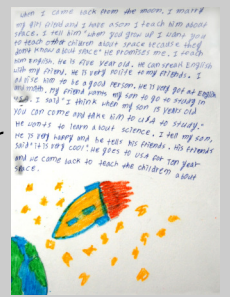 when I come back from the moon, I marry
my girl friend and I have a son I teach him about
space. I tell him "when you grow up I want you
to teach other children about space because they
know about space" He promises me. I teach
him English. He is five year old. He can speak English
with my friend. He is very polite to my friends. I
him to be a good person. He is very good at English
and math, my friend my son to go to study in
I said "I think when my son 15 years old
you can come and take him to USA to study."
He wants to learn about science. I tell my son,
He is very happy and he tell his friends. His friends
said "it is very cool." He goes to USA for ten year
and he come back to teach the children about
space.